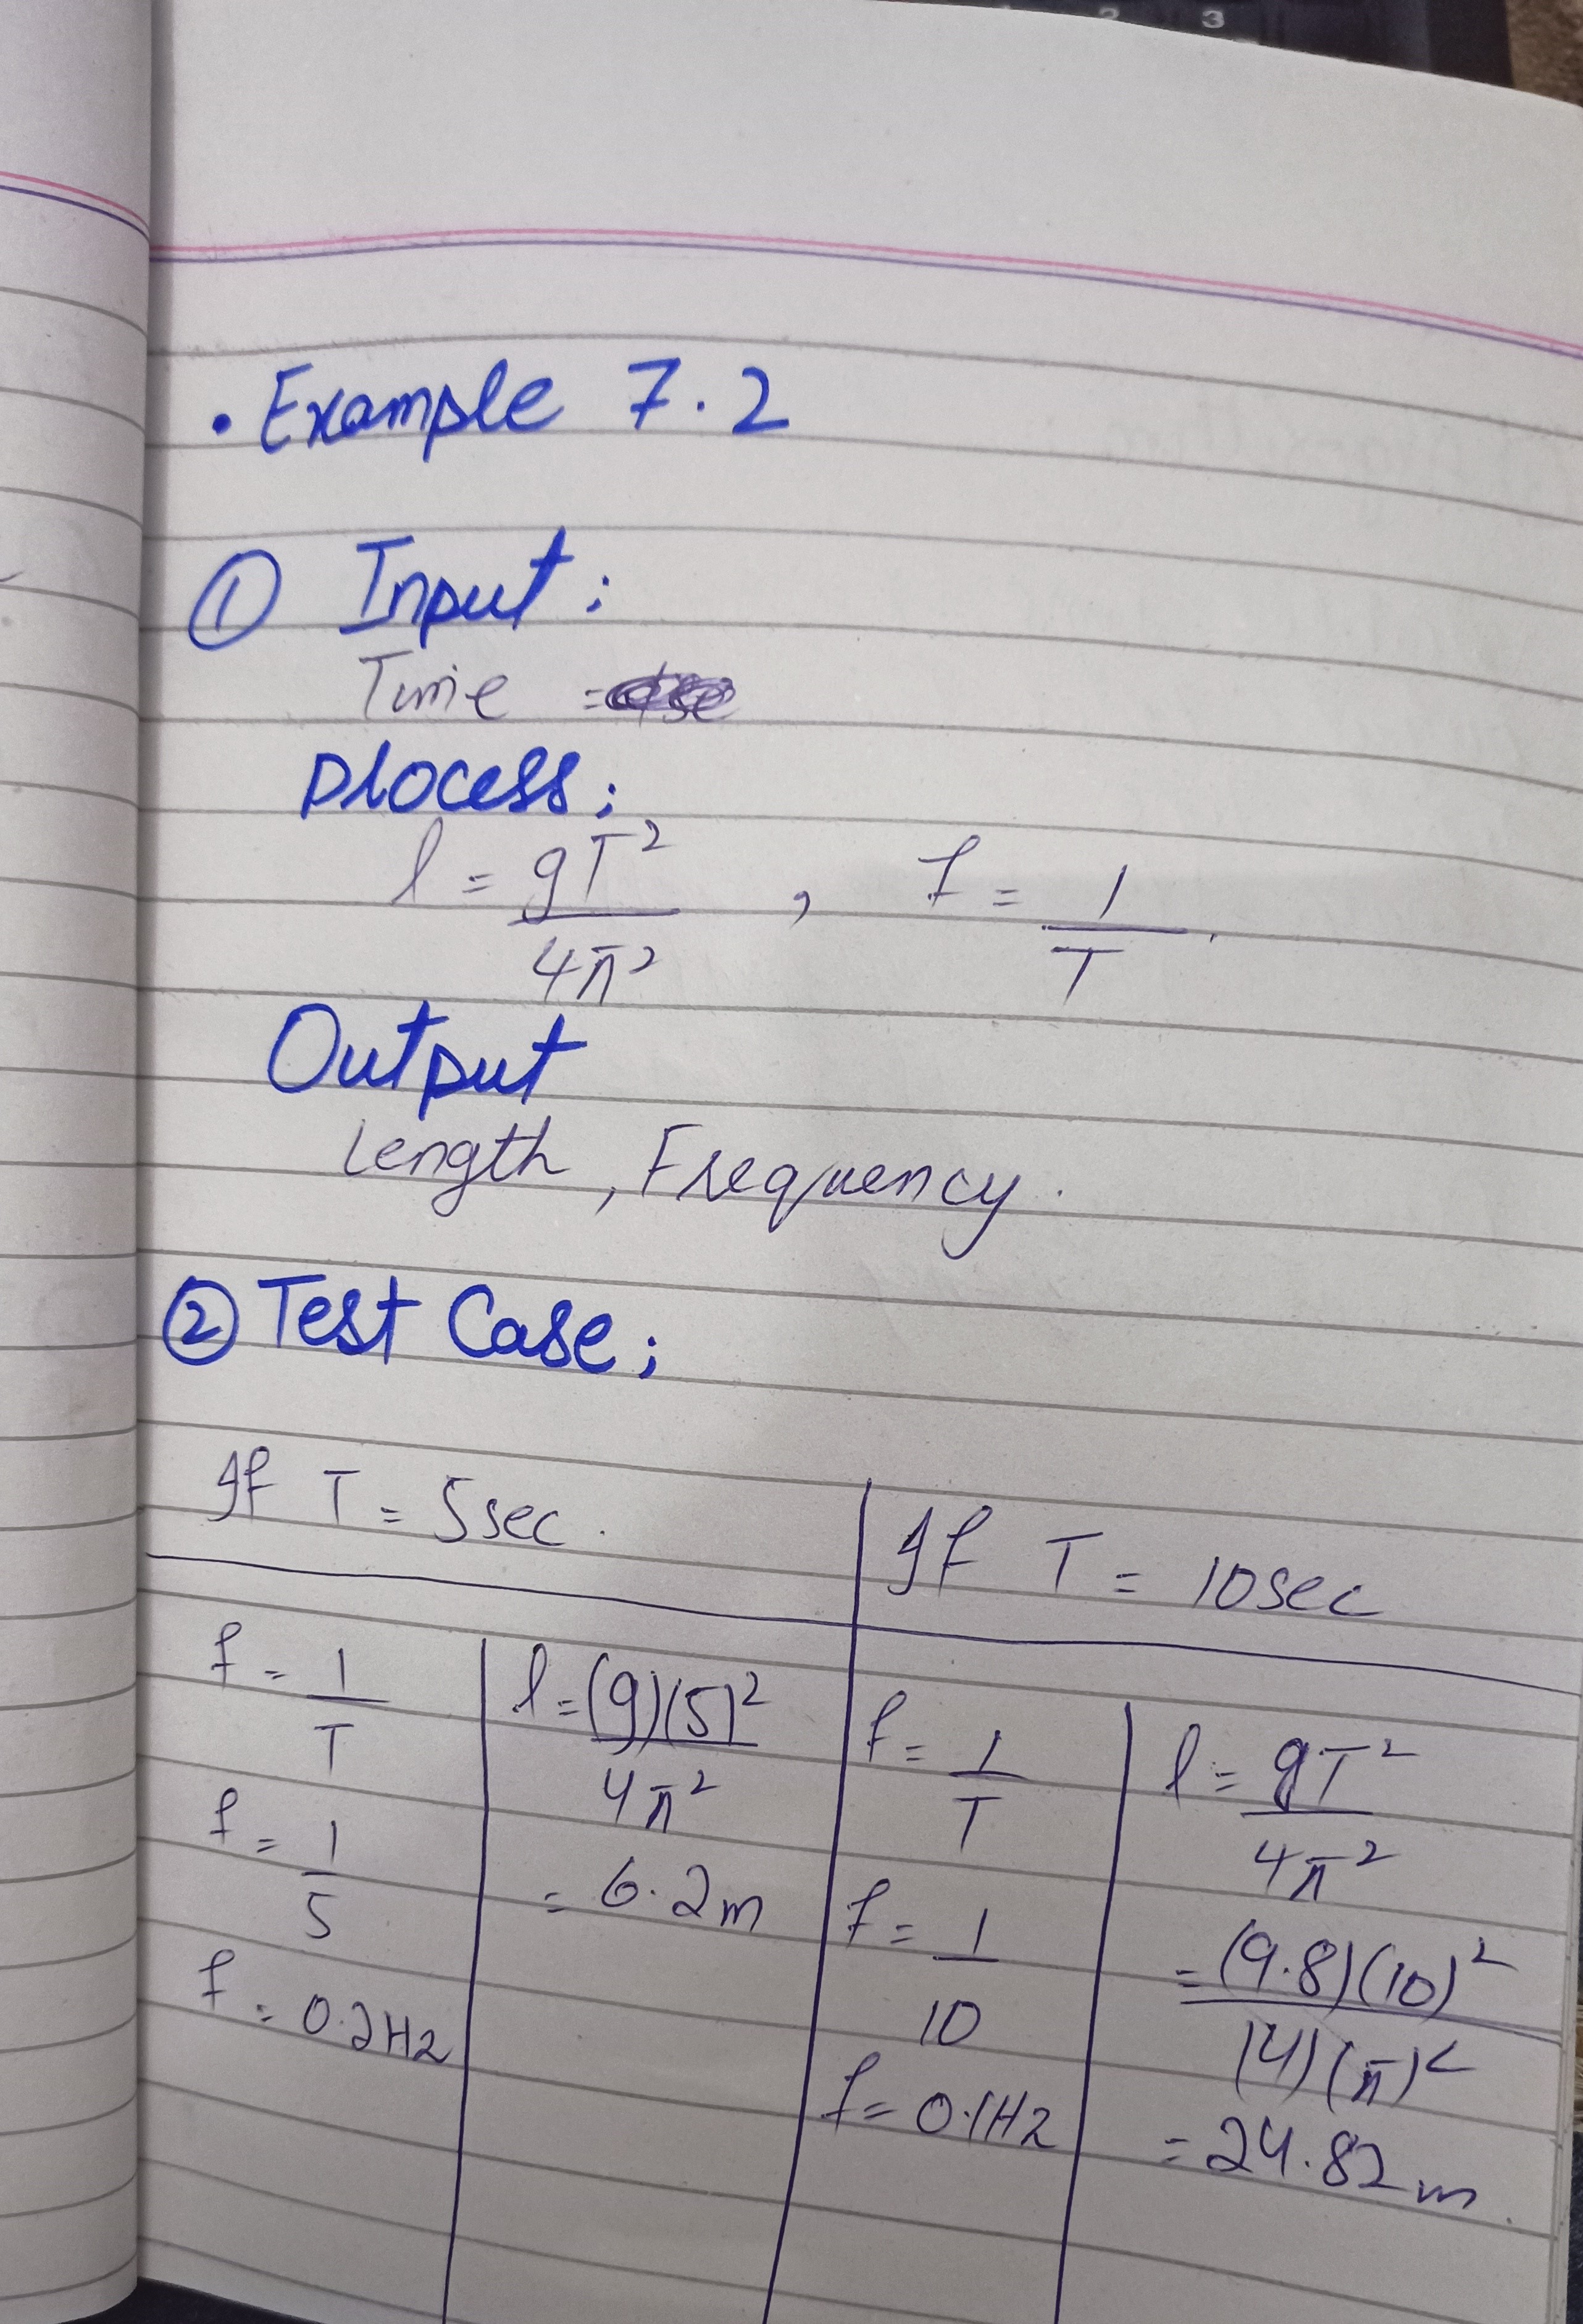 2 3
• Example 7.2
① Input:
Time =
Process:
l = gT² / 4π² , f = 1 / T .
Output
Length, Frequency.
② Test Case:
If T = 5sec.
f = 1 / T
f = 1 / 5
f = 0.2Hz
l = (g)(5)² / 4π²
= 6.2m
If T = 10sec
f = 1 / T
f = 1 / 10
f = 0.1Hz
l = gT² / 4π²
= (9.8)(10)² / (4)(π)²
= 24.82m.